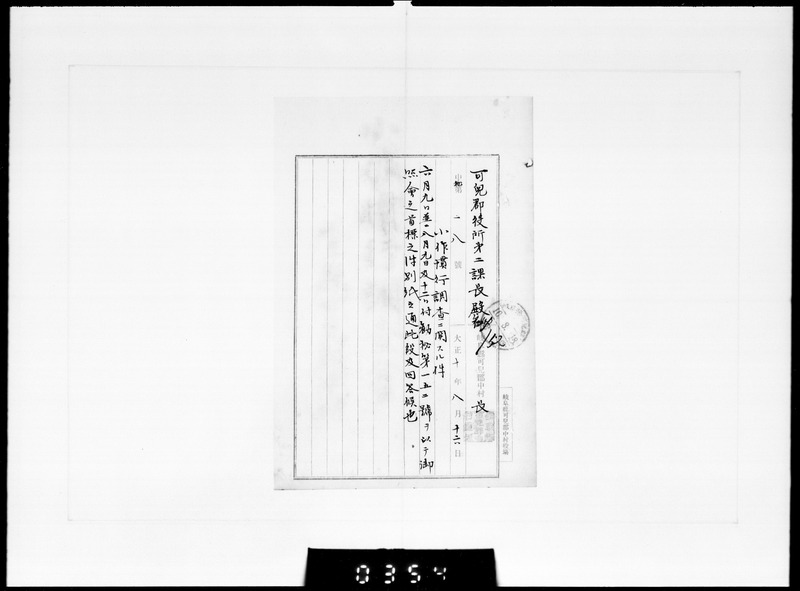 中第一八號
大正十年八月十二日
可兒郡中村長
可兒郡役所第二課長殿
小作慣行調査ニ関スル件
六月九日至八月九日及十二日付勧秘第一五二號ヲ以テ御
照會之首標之件別紙之通此段及回答候也。
岐阜縣可兒郡中村役場
0354